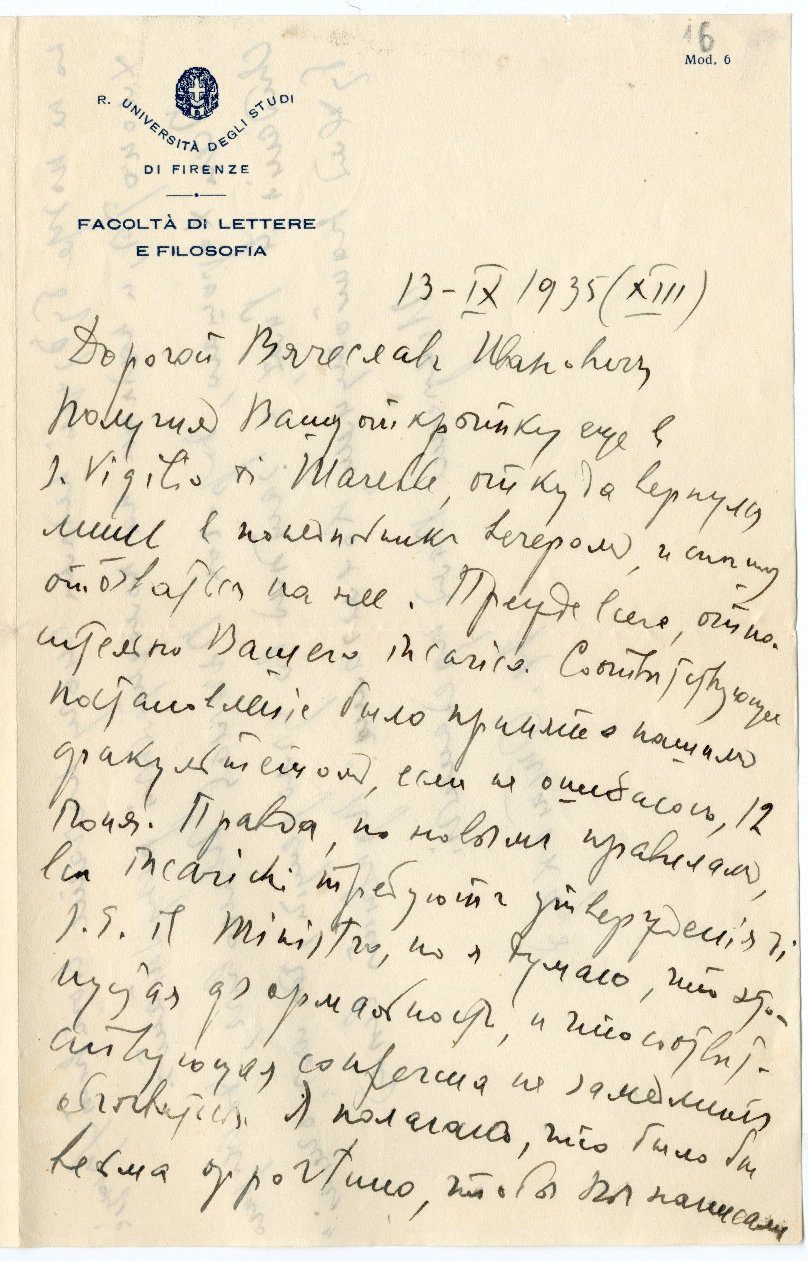 16
Mod. 6
R. UNIVERSITÀ DEGLI STUDI
DI FIRENZE
FACOLTÀ DI LETTERE
E FILOSOFIA
13-IX 1935 (XIII)
Дорогой Вячеславъ Ивановичъ,
Получилъ Вашу открытку еще въ
S. Vigilio di Marebbe, откуда вернулся
лишь въ понедѣльникъ вечеромъ, и спѣшу
отозваться на нее. Прежде всего, относ-
ительно Вашего incarico. Соотвѣтствующее
постановленіе было принято нашимъ
факультетомъ, если не ошибаюсь, 12
Іюня. Правда, по новымъ правиламъ,
всѣ incarichi требуютъ утвержденія di
S. E. il Ministro, но я думаю, что это
пустая формальность, и что соотвѣт-
ствующая conferma не замедлитъ
Я полагаю, что было бы
весьма opportuno, чтобы Вы написали